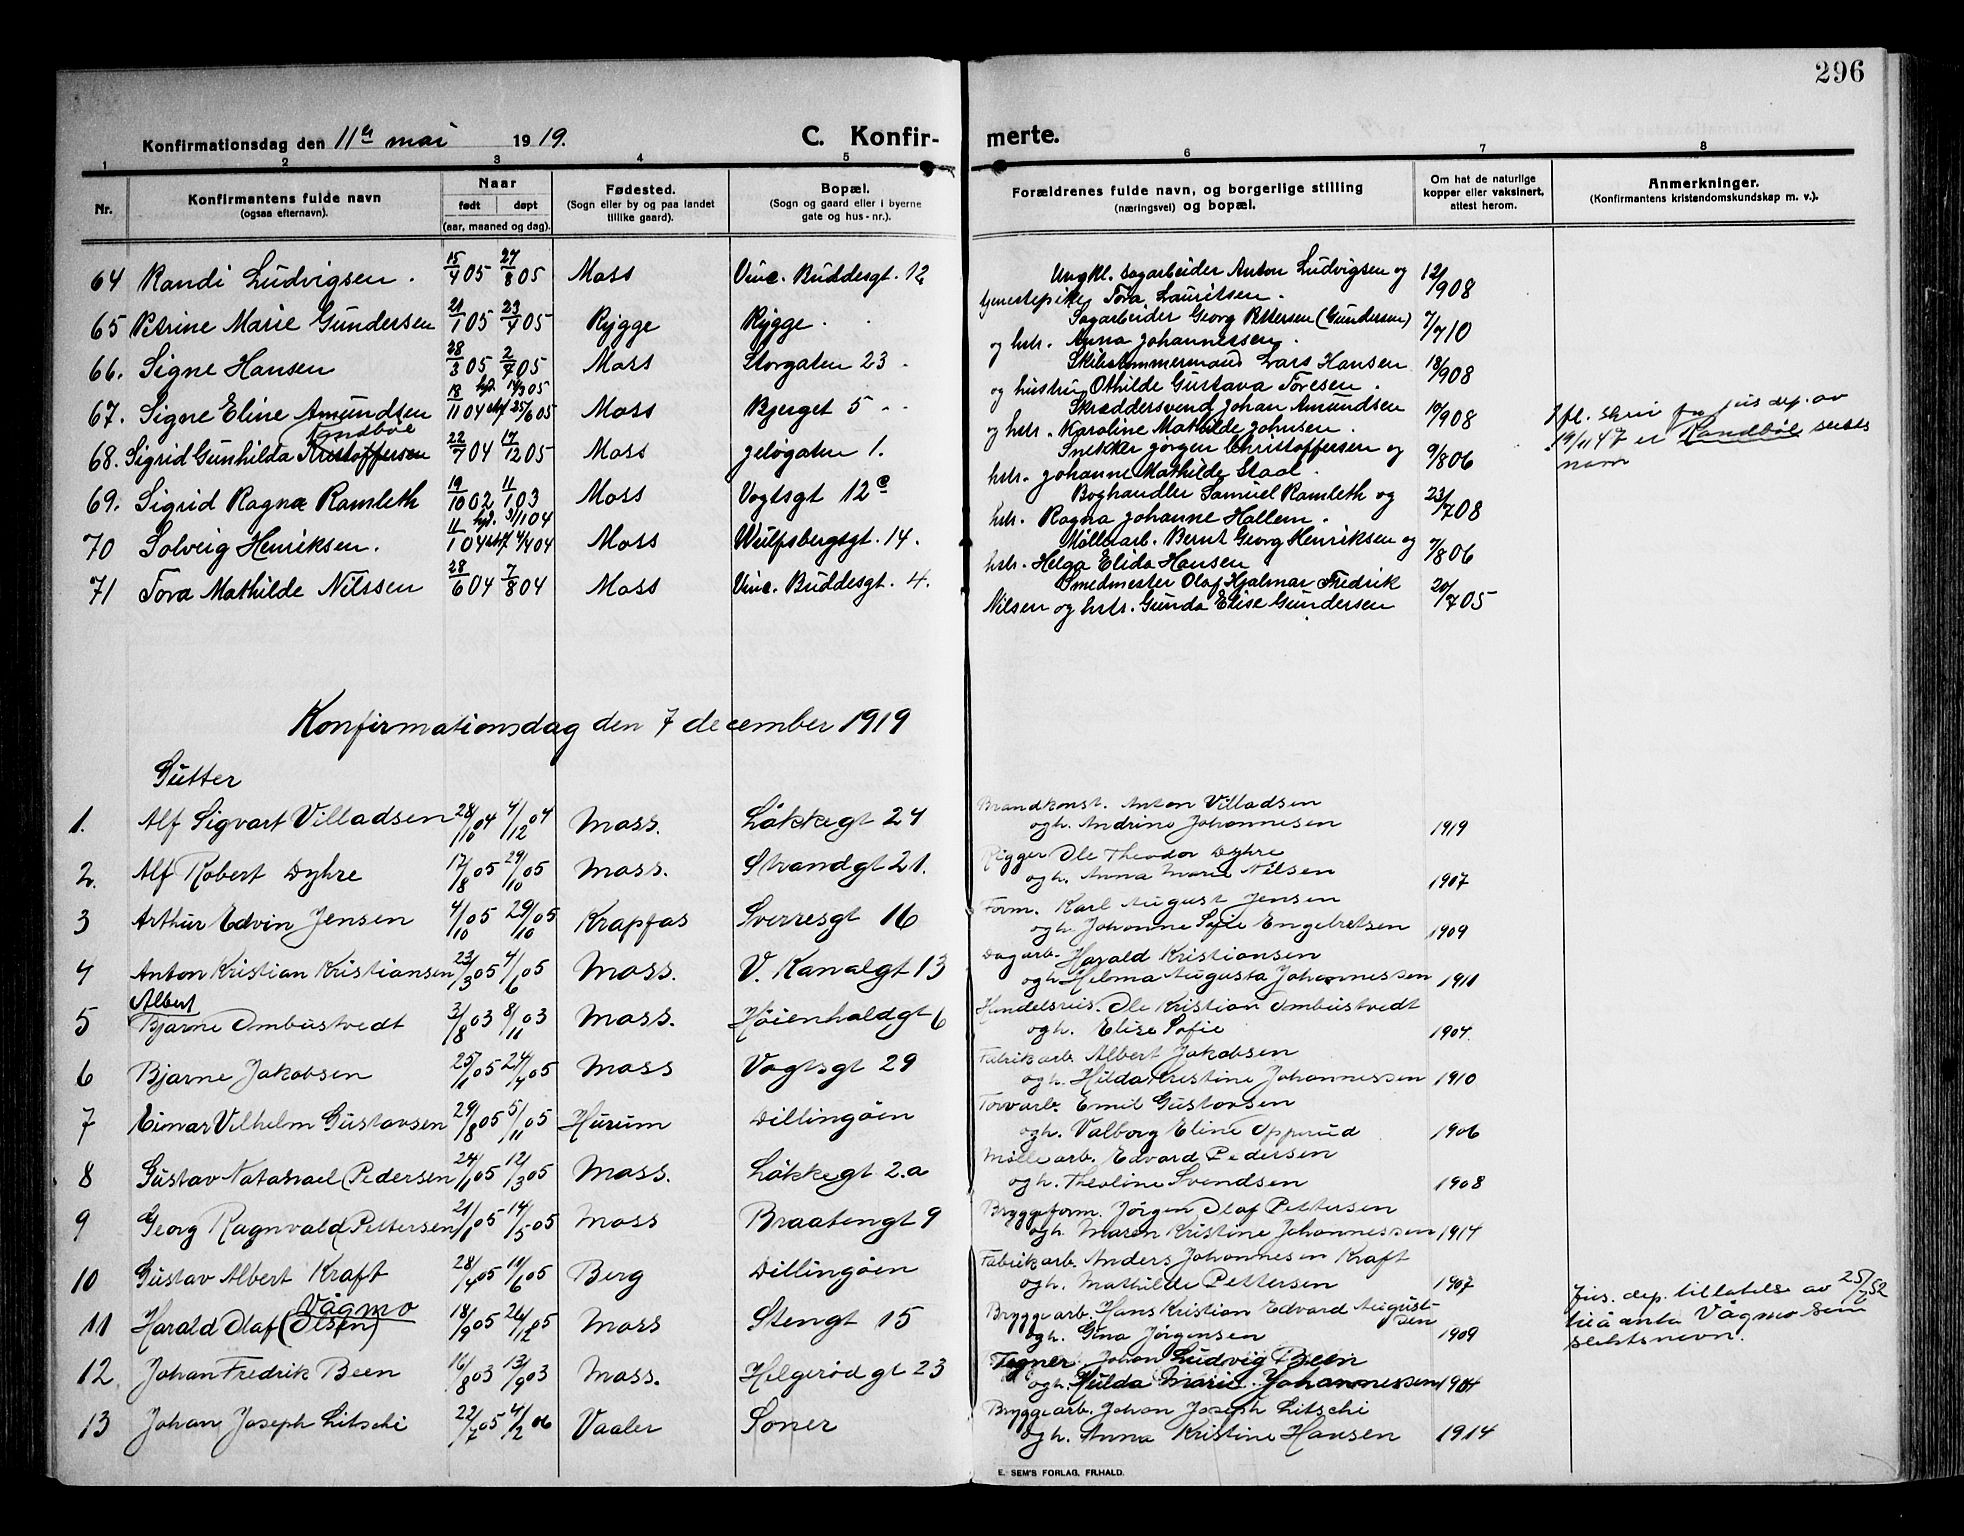 296
Konfirmationsdag den 11te mai 1919. C. Konfir- merte.
1 2 3 4 5 6 7 8
Nr. Konfirmantens fulde navn (ogsaa efternavn). Naar født døpt (aar, maaned og dag). Fødested. (Sogn eller by og paa landet tillike gaard). Bopæl. (Sogn og gaard eller i byerne gate og hus-nr.). Forældrenes fulde navn, og borgerlige stilling (næringsvei) og bopæl. Om hat de naturlige kopper eller vaksinert, attest herom. Anmerkninger. (Konfirmantens kristendomskundskap m. v.).
64 Randi Ludvigsen. 15/4 05 27/8 05 Moss Vinc. Buddesgt. 12 Ungkl. sagarbeider Anton Ludvigsen og 12/908
tjenestepike Tora Lauritsen.
65 Petrine Marie Gundersen 21/1 05 23/4 05 Rygge Rygge. Sagarbeider Georg Pettersen (Gundersen) 7/710
og hstr. Anna Johannessen.
66. Signe Hansen 28/3 05 2/7 05 Moss Storgaten 23. Skibstømmermand Lars Hansen 18/908
og hustru Othilde Gustava Toresen.
67. Signe Eline Amundsen 18/11 04 hjd. 14/3 05 stf 25/6 05 Moss Bjerget 5 Skræddersvend Johan Amundsen 10/908
og hstr. Karoline Mathilde Johnsen.
68. Sigrid Gunhilda Kristoffersen Randbøe 22/7 04 17/12 05 Moss Jeløgaten 1. Snekker Jørgen Christoffersen og 9/806
hstr. Johanne Mathilde Staal.
Ifl. skriv fra jus. dep. av
19/11 47 er Randbøl
navn
69. Sigrid Ragna Ramleth 19/10 02 11/1 03 Moss Vogtsgt 12c Boghandler Samuel Ramleth og 23/708
hstr. Ragna Johanne Hallem.
70 Solveig Henriksen. 11/1 04 hjd. 31/1 04 stf 4/4 04 Moss Wulfsbergsgt. 14. Møllearb. Bernt Georg Henriksen og 7/806
hstr. Helga Elida Hansen
71 Tora Mathilde Nilssen 28/6 04 7/8 04 Moss Vinc. Buddesgt. 4. Smedmester Olaf Hjalmar Fredrik 20/705
Nilsen og hstr. Gunda Elise Gundersen
Konfirmationsdag den 7 december 1919
Gutter
1. Alf Sigvart Villadsen 28/10 04 4/12 04 Moss. Løkkegt 24 Brandkonst. Anton Villadsen
ogh. Andrine Johannesen 1919
2. Alf Robert Dyhre 17/8 05 29/10 05 Moss. Strandgt 21. Rigger Ole Theodor Dyhre
ogh. Anna Marie Nilsen 1907
3 Arthur Edvin Jensen 4/10 05 29/10 05 Krapfos Sverresgt 16 Form. Karl August Jensen
ogh. Johanne Sofie Engebretsen 1909
4 Anton Kristian Kristiansen 23/3 05 4/6 05 Moss. V. Kanalgt 13 Dagarb. Harald Kristiansen
ogh. Helma Augusta Johannessen 1911
5 Albert Bjarne Ombustvedt 3/8 03 8/11 03 Moss. Høienhaldgt 6 Handelsreis. Ole Kristian Ombustvedt
ogh. Elise Sofie 1904.
6 Bjarne Jakobsen 25/1 05 24/4 05 Moss Vogtsgt 29 Fabrikarb. Albert Jakobsen
ogh. Hilda Kristine Johannessen 1910
7 Eimar Vilhelm Gustavsen 29/8 05 5/11 05 Hurum Dillingøen Torvarb. Emil Gustavsen
ogh. Valborg Eline Opprud 1906
8 Gustav Natanael (Pedersen 24/1 05 12/3 05 Moss. Løkkegt 2.a Møllearb. Edvard Pedersen
ogh. Theoline Svendsen 1908
9 Georg Ragnvald (Pettersen 21/1 05 14/5 05 Moss Braatengt 9 Bryggeform. Jørgen Olaf Pettersen
ogh. Maren Kristine Johannessen 1914
10 Gustav Albert Kraft 28/4 05 11/6 05 Berg Dillingøen Fabrikarb. Anders Johannesen Kraft
ogh. Mathilde Pettersen 1907
11 Harald Olaf (Olsen) Vågmo 18/9 05 26/12 05 Moss Stengt 15 Bryggearb. Hans Kristian Edvard Augustsen
ogh. Gina Jørgensen 1909
Jus. dep. tillatelse av 25/7 52
til å anta Vågmo som
slektsnavn.
12. Johan Fredrik Been 16/8 03 13/9 03 Moss. Helgerødgt 23 Tegner Johan Ludvig Been
ogh. Hulda Marie Johannessen 1904
13 Johan Joseph Litschi 22/7 05 4/2 06 Vaaler Soner Bryggearb. Johan Joseph Litschi
ogh. Anna Kristine Hansen 1914
E. SEM'S FORLAG, FR.HALD.